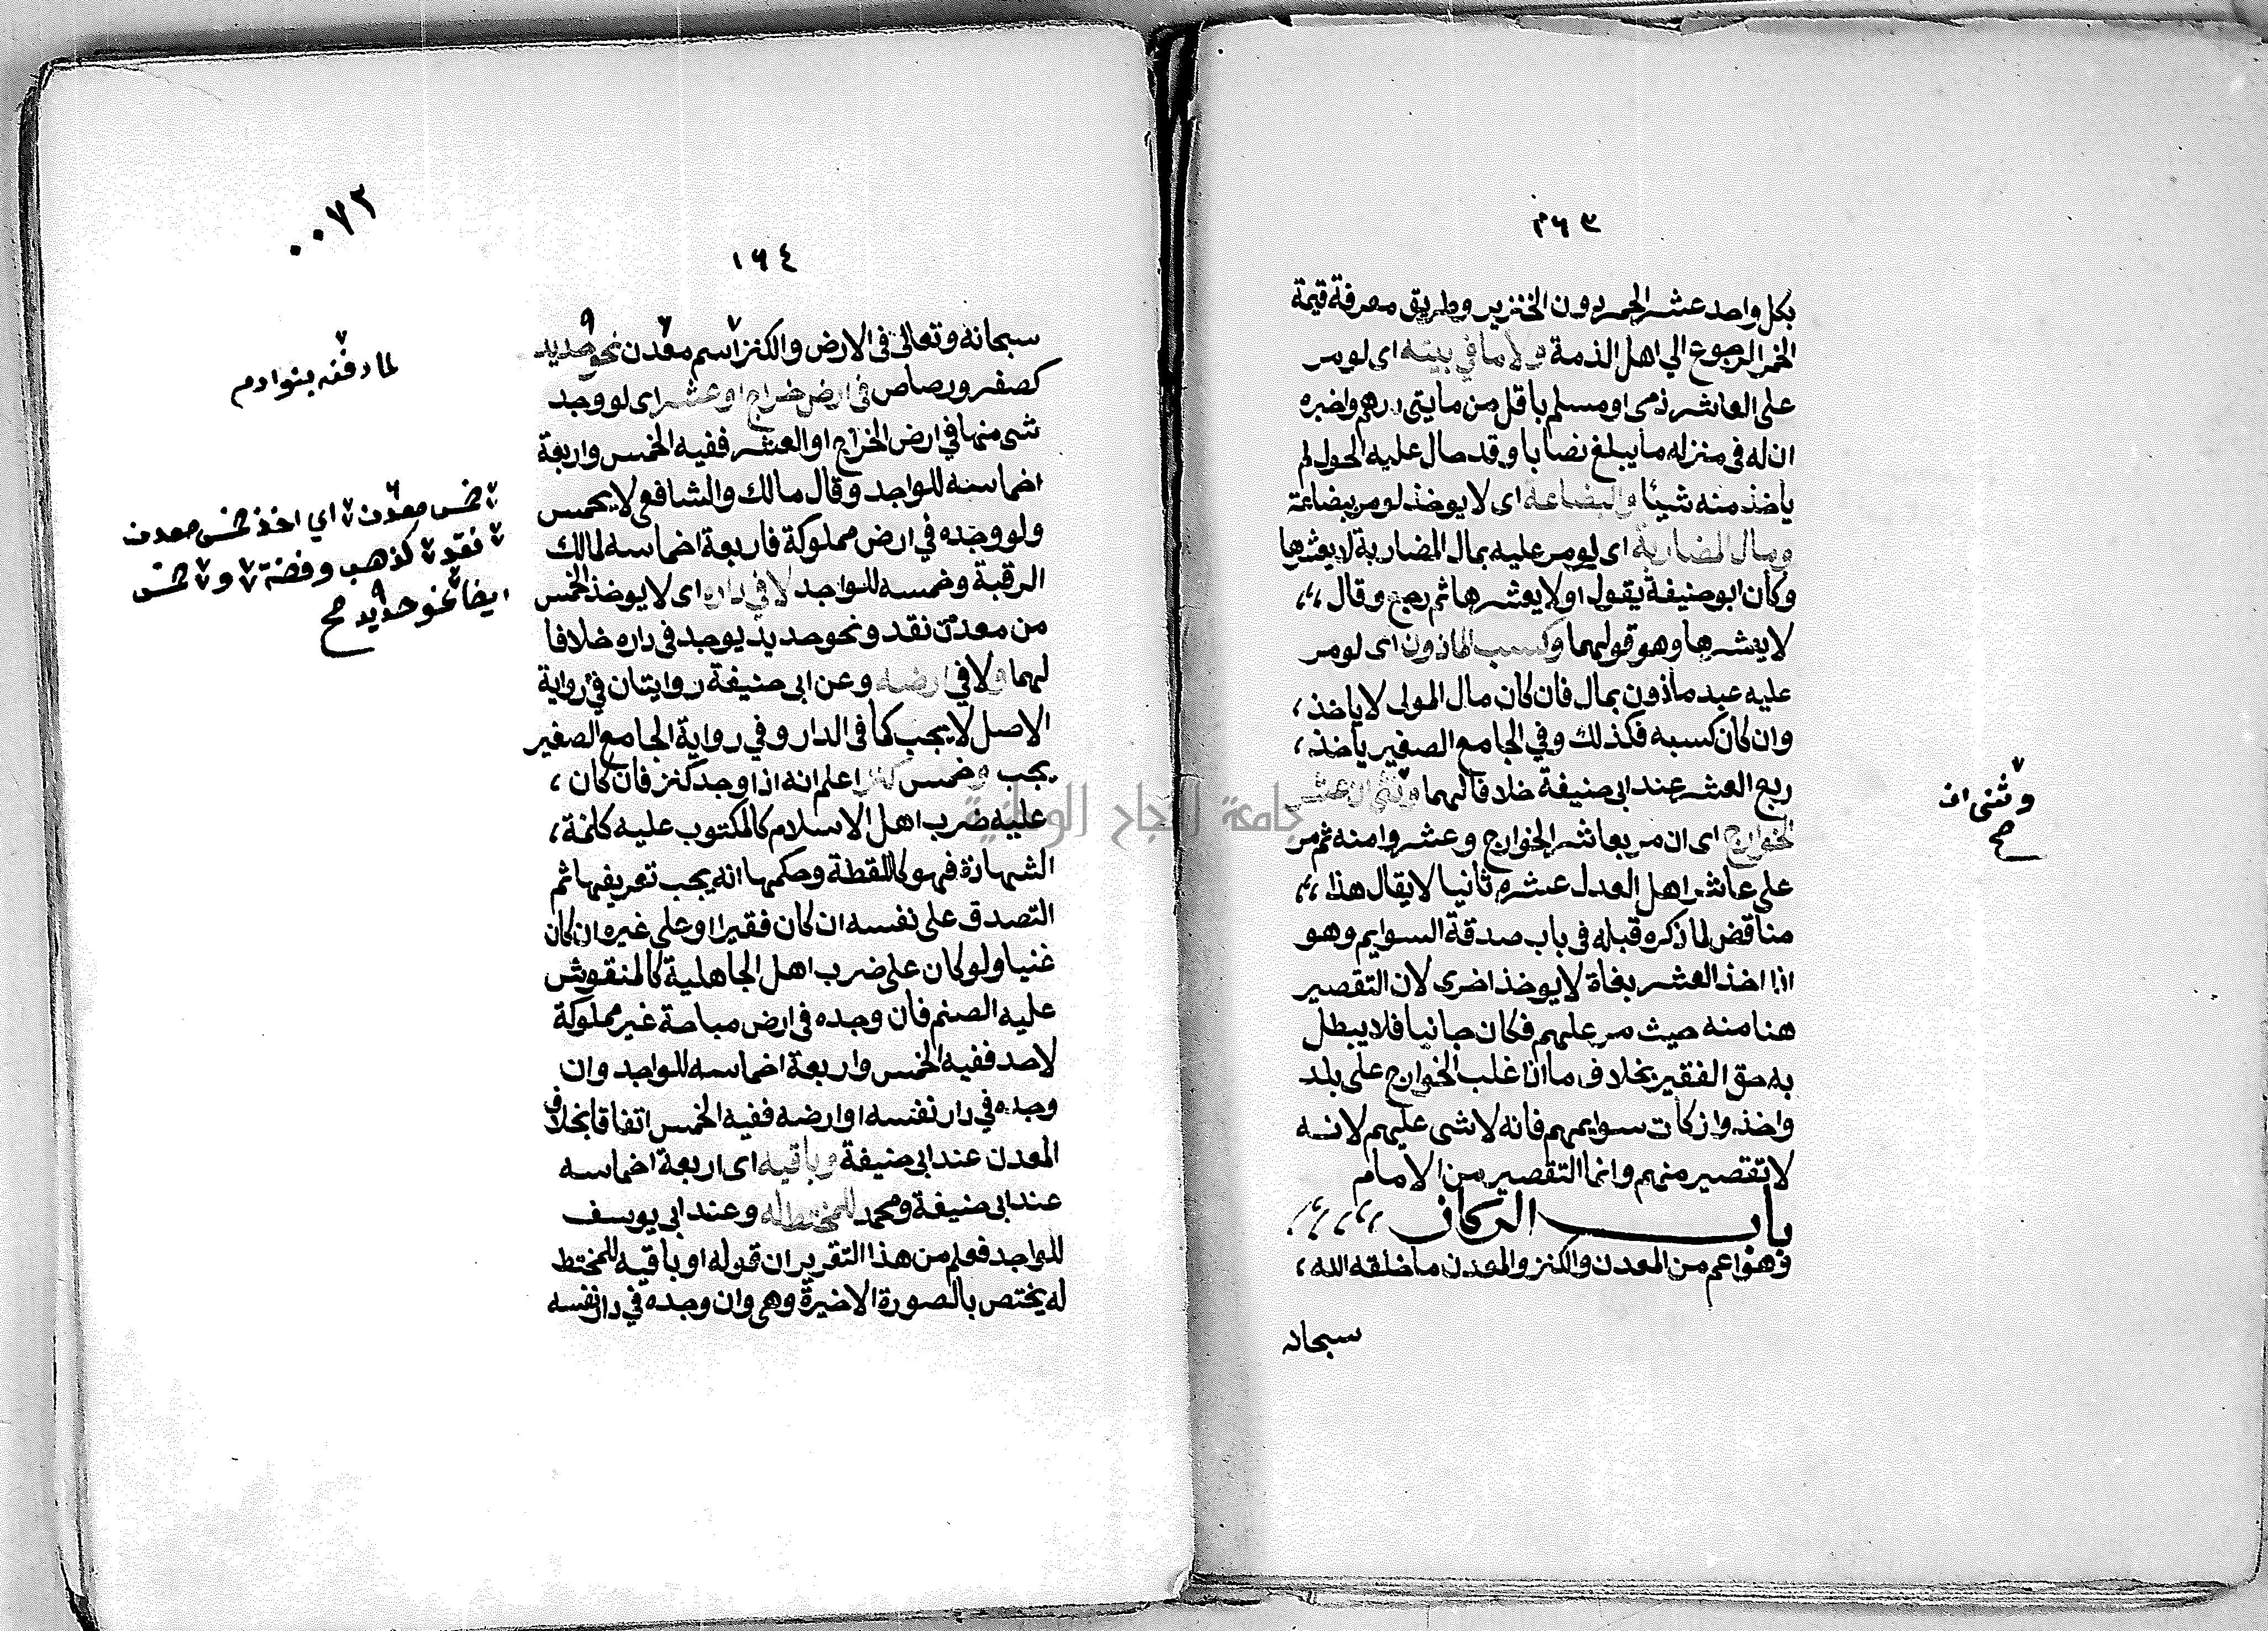 ١٦٣
بكل واحد عشر الخمر دون الخنزير وطريق معرفة قيمة
الخمر الرجوع الى اهل الذمة ولا ما في بيته اى لو مر
على العاشر ذمى او مسلم باقل من مايتى درهم واخبره
ان له فى منزله ما يبلغ نصابا وقد حال عليه الحول لم
ياخذ منه شيئا والبضاعة اى لا يوخذ لو مر ببضاعة
ومال المضاربة اى لو مر عليه بمال المضاربة لا يعشرها
وكان ابو حنيفة يقول اولا يعشرها ثم رجع وقال
لا يعشرها وهو قولهما وكسب الماذون اى لو مر
عليه عبد مأذون بمال فان كان مال المولى لا ياخذ
وان كان كسبه فكذلك وفي الجامع الصغير ياخذ
ربع العشر عند ابى حنيفة خلافا لهما وثنى ان عشر
الخوارج اى ان مر بعاشر الخوارج وعشروا منه ثم مر
على عاشر اهل العدل عشره ثانيا لا يقال هذا
مناقض لما ذكره قبله فى باب صدقة السوايم وهو
اذا اخذ العشر بغاة لا يوخذ اخرى لان التقصير
هنا منه حيث مر عليهم فكان جانيا فلا يبطل
به حق الفقير بخلاف ما اذا غلب الخوارج على بلد
واخذوا زكات سوايمهم فانه لا شى عليهم لانه
لا تقصير منهم وانما التقصير من الامام
باب الركاز
وهو اعم من المعدن والكنز والمعدن ما خلقه الله
سبحانه
وثنى ان
صح
جامعة النجاح الوطنية
٠٠٧٢
١٦٤
سبحانه وتعالى فى الارض والكنز اسم معدن نحو حديد
كصفر ورصاص فى ارض خراج او عشر اى لو وجد
شى منها في ارض الخراج او العشر ففيه الخمس واربعة
اخماسه للواجد وقال مالك والشافعى لا يخمس
ولو وجده في ارض مملوكة فاربعة اخماسه لمالك
الرقبة وخمسه للواجد لا في داره اى لا يوخذ الخمس
من معدن نقد ونحو حديد يوجد فى داره خلافا
لهما ولا في ارضه وعن ابى حنيفة روايتان في رواية
الاصل لا يجب كما فى الدار وفي رواية الجامع الصغير
يجب وخمس كنز اعلم انه اذا وجد كنز فان كان
عليه ضرب اهل الاسلام كالمكتوب عليه كلمة
الشهادة فهو كاللقطة وحكمها انه يجب تعريفها ثم
التصدق على نفسه ان كان فقيرا او على غيره ان كان
غنيا ولو كان على ضرب اهل الجاهلية كالمنقوش
عليه الصنم فان وجده فى ارض مباحة غير مملوكة
لاحد ففيه الخمس واربعة اخماسه للواجد وان
وجده في دار نفسه او ارضه ففيه الخمس اتفاقا بخلاف
المعدن عند ابى حنيفة وباقيه اى اربعة اخماسه
عند ابى حنيفة ومحمد للمختط له وعند ابى يوسف
للواجد فعلم من هذا التقرير ان قوله او باقيه للمختط
له يختص بالصورة الاخيرة وهى وان وجده فى دار نفسه
لما دفنه بنوا ادم
خمس معدن اي اخذ خمس معدن
نقد كذهب وفضة و خمس
ايضا نحو حديد صح